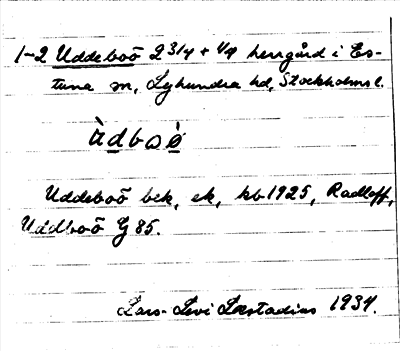 1-2 Uddeboö 2 3/4 + 1/4 herrgård i Es-
tuna sn, Lyhundra hd, Stockholms l.
ùdboö̀
Uddeboö bek, ek, kb 1925, Radloff,
Uddboö G 85.
Lars-Levi Læstadius 1934.